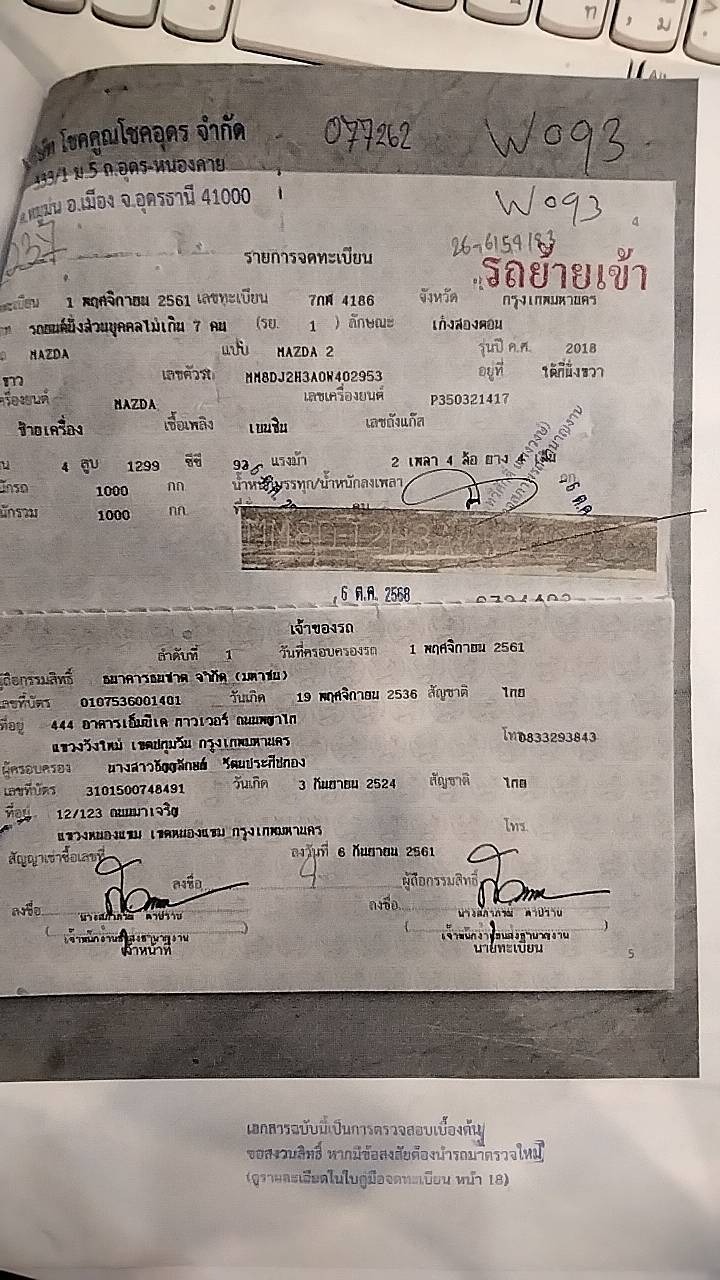 โชคคูณโชคอุดร จำกัด 077262 W093
333/1 ม.5 ถ.อุดร-หนองคาย
อ.เมือง จ.อุดรธานี 41000 W093
4
237
รายการจดทะเบียน
รถย้ายเข้า
1 พฤศจิกายน 2561 เลขทะเบียน 7กศ 4186 จังหวัด กรุงเทพมหานคร
รถยนต์นั่งส่วนบุคคลไม่เกิน 7 คน (รย. 1 ) ลักษณะ เก๋งสองตอน
MAZDA แบบ MAZDA 2 รุ่นปี ค.ศ. 2018
ขาว เลขตัวรถ MM8DJ2H3A0W402953 อยู่ที่ ใต้ที่นั่งขวา
MAZDA เลขเครื่องยนต์ P350321417
ซ้ายเครื่อง เชื้อเพลิง เบนซิน เลขถังแก๊ส
4 สูบ 1299 ซีซี 93 แรงม้า 2 เพลา 4 ล้อ ยาง 4 เส้น
1000 กก น้ำหนักบรรทุก/น้ำหนักลงเพลา กก
1000 กก.
6 ต.ค. 2568
เจ้าของรถ
ลำดับที่ 1 วันที่ครอบครองรถ 1 พฤศจิกายน 2561
ผู้ถือกรรมสิทธิ์ ธนาคารธนชาต จำกัด (มหาชน)
เลขที่บัตร 0107536001401 วันเกิด 19 พฤศจิกายน 2536 สัญชาติ ไทย
ที่อยู่ 444 อาคารเอ็มบีเค ทาวเวอร์ ถนนพญาไท
แขวงวังใหม่ เขตปทุมวัน กรุงเทพมหานคร โทร0833293843
ผู้ครอบครอง นางสาวธัญลักษณ์ รัตนประทีปทอง
เลขที่บัตร 3101500748491 วันเกิด 3 กันยายน 2524 สัญชาติ ไทย
ที่อยู่ 12/123 ถนนมาเจริญ
แขวงหนองแขม เขตหนองแขม กรุงเทพมหานคร โทร.
สัญญาเช่าซื้อเลขที่ ลงวันที่ 6 กันยายน 2561
ลงชื่อ ผู้ถือกรรมสิทธิ์
ลงชื่อ ลงชื่อ
เจ้าหน้าที่ นายทะเบียน
5
เอกสารฉบับนี้เป็นการตรวจสอบเบื้องต้น
ขอสงวนสิทธิ์ หากมีข้อสงสัยต้องนำรถมาตรวจใหม่
(ดูรายละเอียดในใบคู่มือจดทะเบียน หน้า 18)